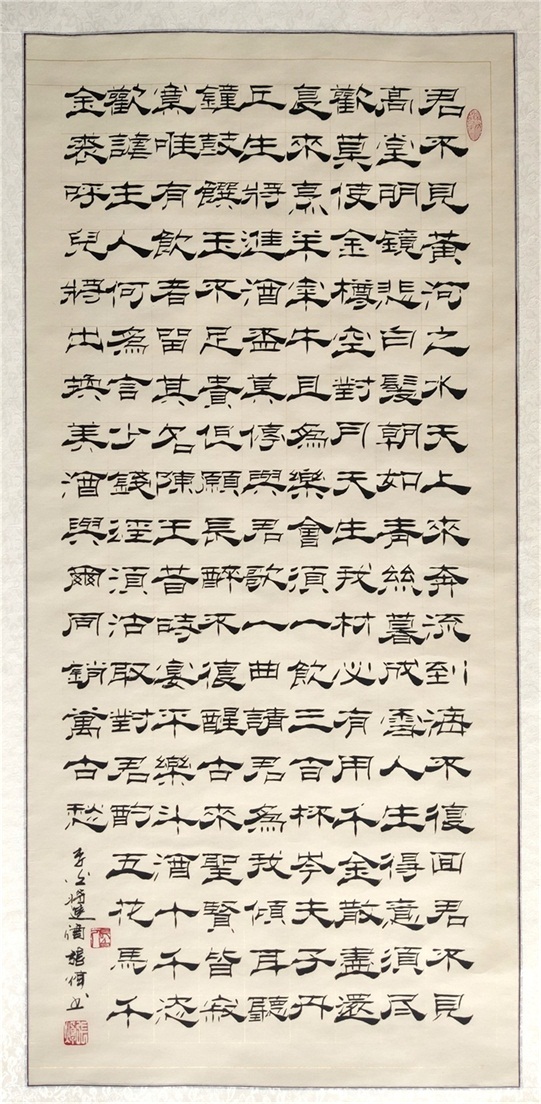 君不見黃河之水天上來奔流到海不復回君不見
高堂明鏡悲白髮朝如青絲暮成雪人生得意須盡
歡莫使金樽空對月天生我材必有用千金散盡還
來烹羊宰牛且為樂會須一飲三百杯岑夫子丹
丘生將進酒盃莫停與君歌一曲請君為我傾耳聽
鐘鼓饌玉不足貴但願長醉不復醒古來聖賢皆寂
寞唯有飲者留其名陳王昔時宴平樂斗酒十千恣
歡謔主人何為言少錢徑須沽取對君酌五花馬千
金裘呼兒將出換美酒與爾同銷萬古愁
李白將進酒